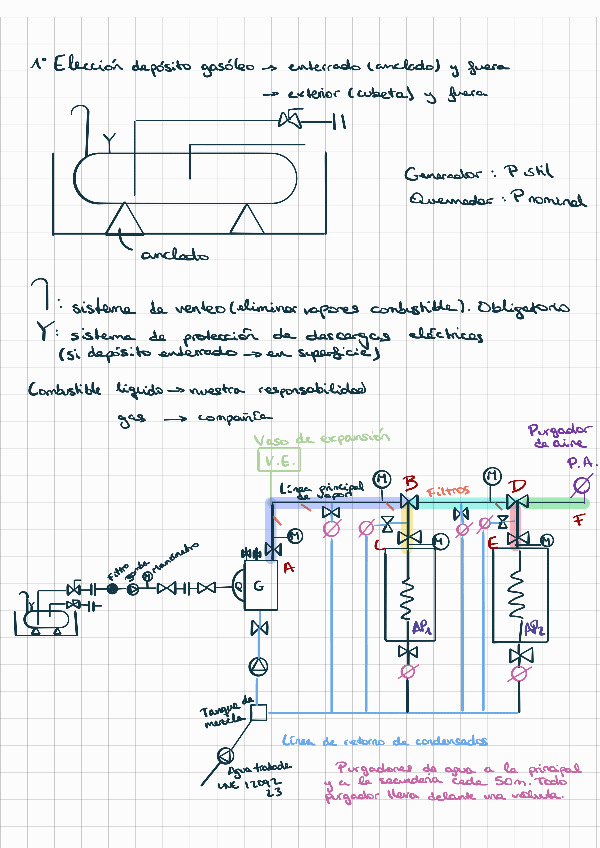 1º Elección depósito gasóleo → enterrado (anclado) y fuera
→ exterior (cubeta) y fuera
Generador : P útil
Quemador : P nominal
anclado
: sistema de venteo (eliminar vapores combustible). Obligatorio
Y : sistema de protección de descargas eléctricas
(si depósito enterrado → en superficie)
Combustible líquido → nuestra responsabilidad
gas → compañía
Vaso de expansión
V.E.
Purgador
de aire
P.A.
Línea principal
de vapor
M
B
Filtros
M
D
F
M
A
C
M
E
M
Filtro
Manómetro
M
G
AP1
AP2
Tanque de
mezcla
Agua tratada
UNE 12092
23
Línea de retorno de condensados
Purgadores de agua a la principal
y a la secundaria cada 50m. Todo
purgador lleva delante una válvula.